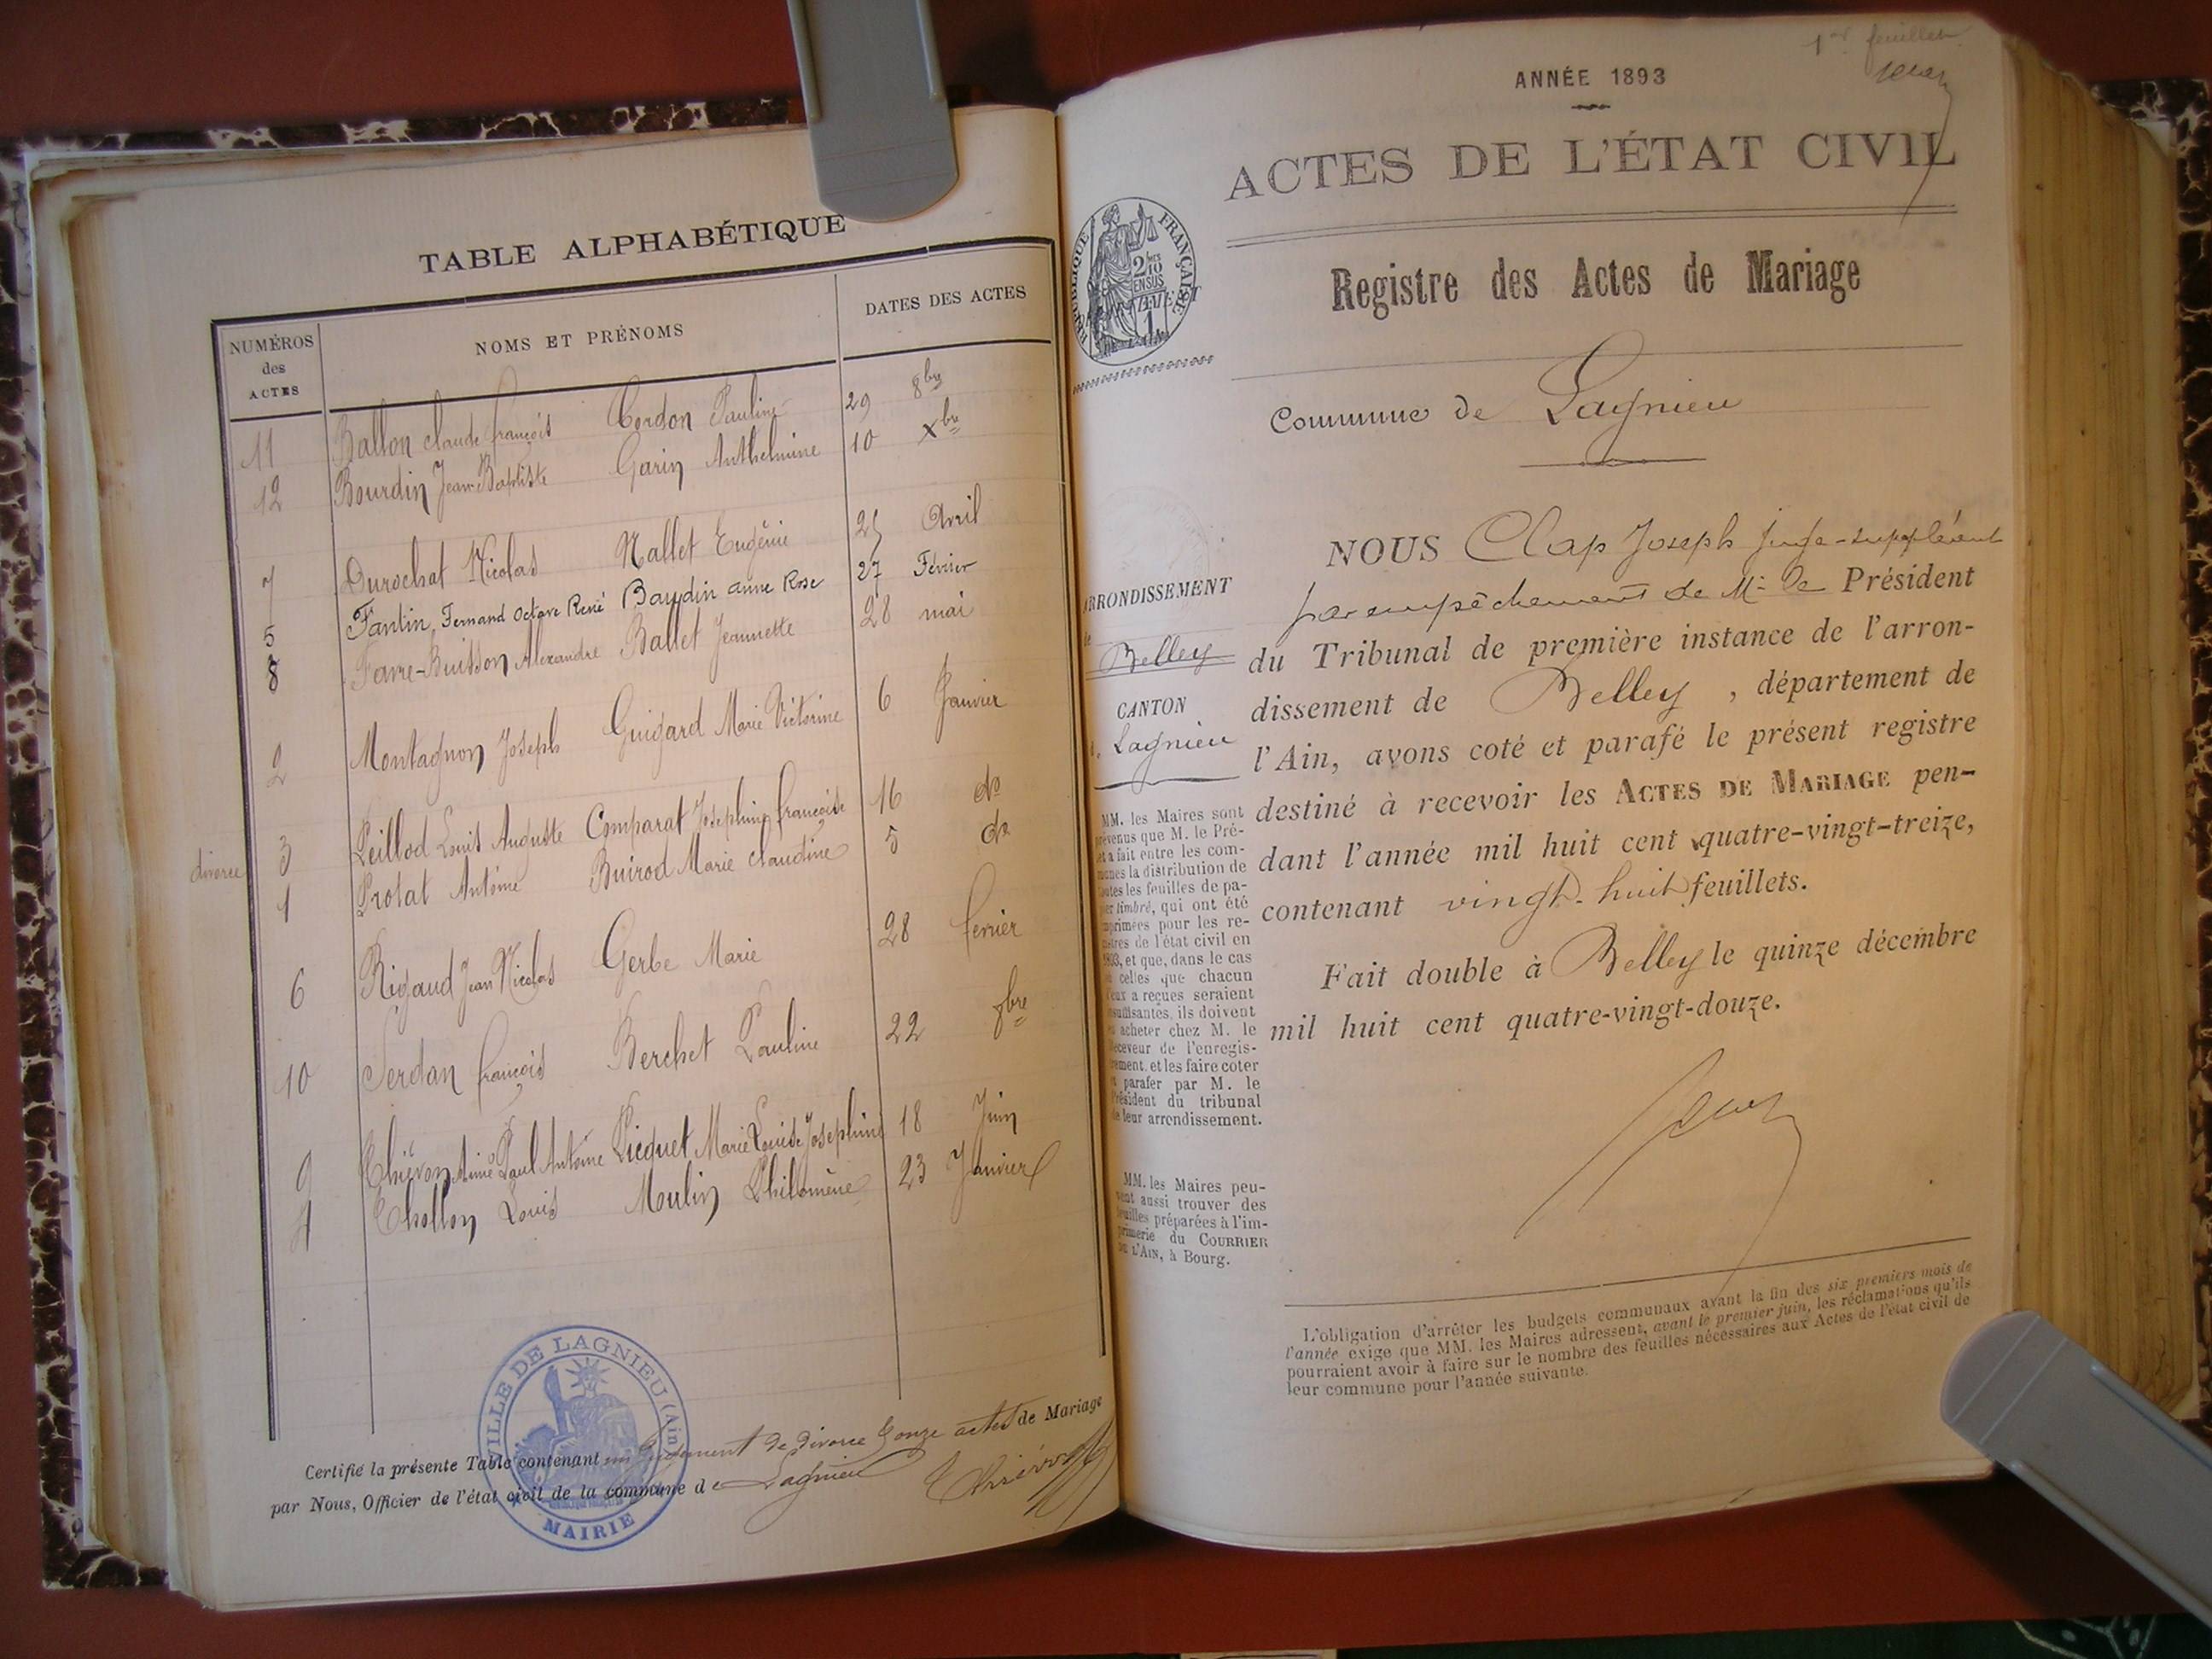 TABLE ALPHABÉTIQUE
NUMÉROS des ACTES
NOMS ET PRÉNOMS
DATES DES ACTES
11 Ballon Claude françois Cordon Pauline 29 8bre
12 Bourdin Jean-Baptiste Garin Anthelmine 10 Xbre
7 Durochat Nicolas Mallet Eugénie 25 Avril
5 Fantin, Fernand Octave René Baudin Anne Rose 27 Février
8 Favre-Buisson Alexandre Ballet Jeannette 28 mai
2 Montagnon Joseph Guigard Marie Victorine 6 Janvier
divorce 3 Peillod Louis Auguste Comparat Joséphine françoise 16 do
1 Prolat Antoine Buirod Marie Claudine 5 do
6 Rigaud Jean Nicolas Gerbe Marie 28 fevrier
10 Serdan françois Berchet Pauline 22 8bre
9 Thiévon Aimé Paul Antoine Picquet Marie Louise Joséphine 18 Juin
4 Thollon Louis Moulin Philomène 23 Janvier
VILLE DE LAGNIEU (Ain)
MAIRIE
Certifié la présente Table contenant un Jugement de divorce & onze actes de Mariage
par Nous, Officier de l'état civil de la commune de Lagnieu
1er feuillet
ANNÉE 1893
ACTES DE L'ÉTAT CIVIL
RÉPUBLIQUE FRANÇAISE
2/10 EN SUS
Registre des Actes de Mariage
Commune de Lagnieu
NOUS Clap Joseph juge-suppléant
par empêchement de Mr le Président
du Tribunal de première instance de l'arron-
dissement de Belley, département de
l'Ain, avons coté et parafé le présent registre
destiné à recevoir les ACTES DE MARIAGE pen-
dant l'année mil huit cent quatre-vingt-treize,
contenant vingt-huit feuillets.
Fait double à Belley le quinze décembre
mil huit cent quatre-vingt-douze.
ARRONDISSEMENT
de
Belley
CANTON
Lagnieu
MM. les Maires sont
prévenus que M. le Pré-
fet a fait entre les com-
munes la distribution de
toutes les feuilles de pa-
pier timbré, qui ont été
imprimées pour les re-
gistres de l'état civil en
1893, et que, dans le cas
où celles que chacun
d'eux a reçues seraient
insuffisantes, ils doivent
en acheter chez M. le
Receveur de l'enregis-
trement, et les faire coter
et parafer par M. le
Président du tribunal
de leur arrondissement.
MM. les Maires peu-
vent aussi trouver des
feuilles préparées à l'im-
primerie du COURRIER
DE L'AIN, à Bourg.
L'obligation d'arrêter les budgets communaux avant la fin des six premiers mois de
l'année exige que MM. les Maires adressent, avant le premier juin, les réclamations qu'ils
pourraient avoir à faire sur le nombre des feuilles nécessaires aux Actes de l'état civil de
leur commune pour l'année suivante.